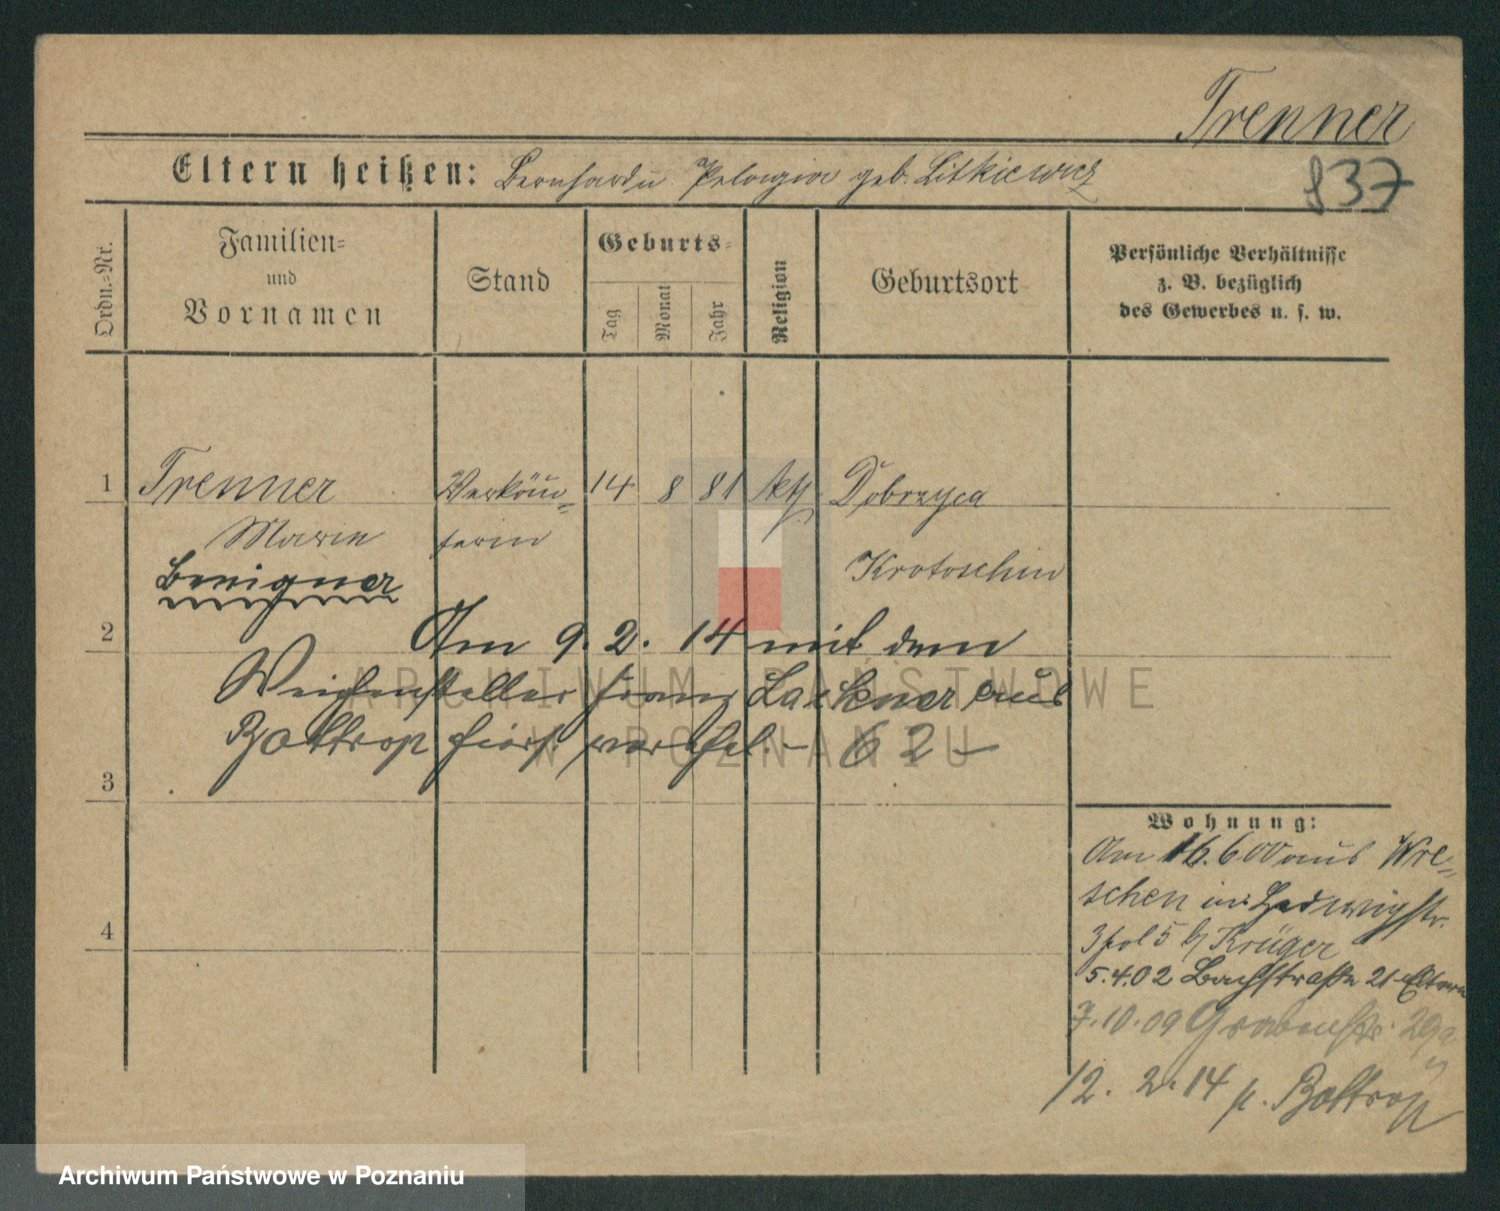 Trenner
837
Eltern heißen: Bernhard u. Pelagia geb. Litkiewicz
Ordn.-Nr.
Familien- und Vornamen
Stand
Geburts-
Tag
Monat
Jahr
Religion
Geburtsort
Persönliche Verhältnisse
z. B. bezüglich
des Gewerbes u. s. w.
1 Trenner Verkäu- 14 8 81 kth. Dobrzyca
Marie ferin
Krotoschin
2 Am 9. 2. 14 mit dem
Weichensteller Franz Lackner aus
Bottrop hiers. verehel. - 62 -
3
4
Wohnung:
Am 16.6.00 aus Wre-
schen in Hedwigstr.
3 pol 5 b/ Krüger
5.4.02 Bachstraße 21 Eltern
7.10.09 Grabenstr. 29a
12. 2. 14 n. Bottrop
ARCHIWUM PAŃSTWOWE
W POZNANIU
Archiwum Państwowe w Poznaniu